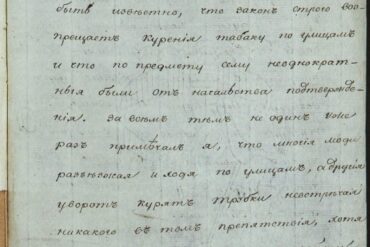 быть извѣстно, что законъ строго вос-
прещаетъ куренія табаку по улицамъ
и что по предмету сему неоднократ-
ныя были отъ начальства подтвержде-
нія. За всѣмъ тѣмъ не одинъ уже
разъ примѣчалъ я, что многія люди
разъѣзжая и ходя по улицамъ, а другія
у воротъ курятъ трубки невстрѣчая
никакого въ томъ препятствія, хотя